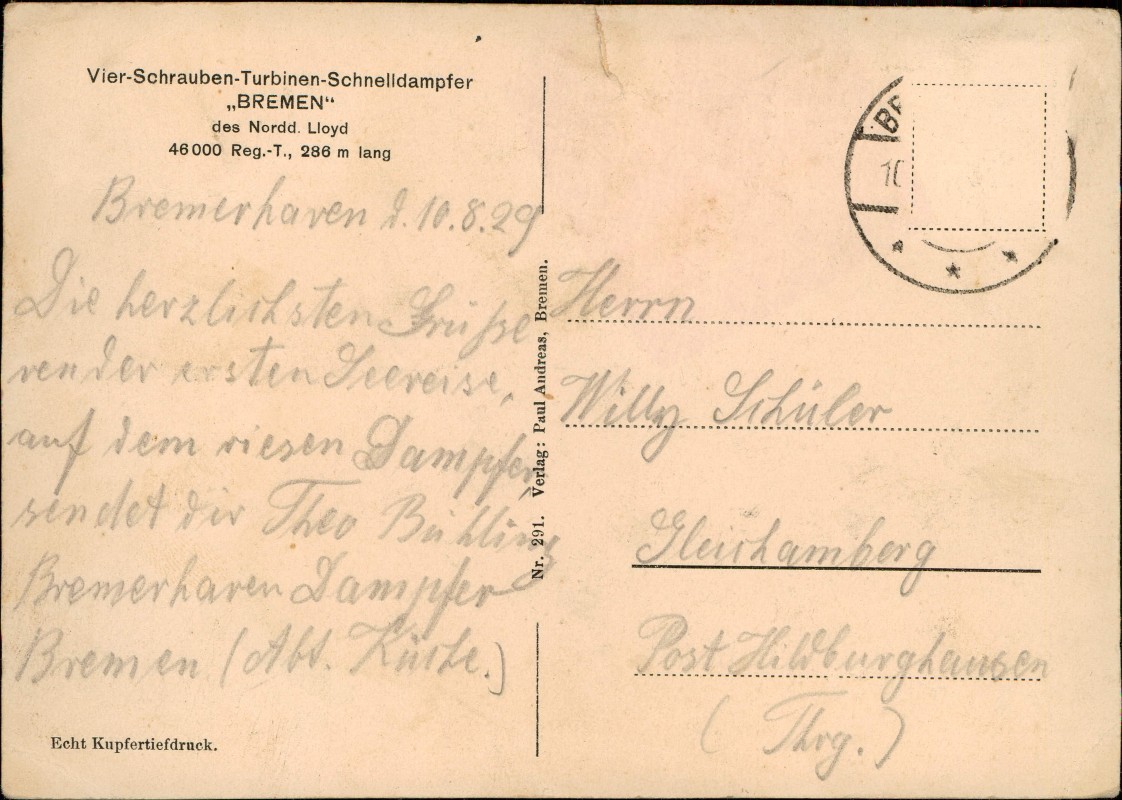 Vier-Schrauben-Turbinen-Schnelldampfer
„BREMEN“
des Nordd. Lloyd
46000 Reg.-T., 286 m lang
Bremerhaven d. 10.8.29
Die herzlichsten Grüße
von der ersten Seereise,
auf dem riesen Dampfer,
sendet dir Theo Bühling
Bremerhaven Dampfer
Bremen (Abt. Küche.)
Echt Kupfertiefdruck.
Nr. 291. Verlag: Paul Andreas, Bremen.
BR
10
Herrn
Willy Schüler
Gleichamberg
Post Hildburghausen
(Thrg.)